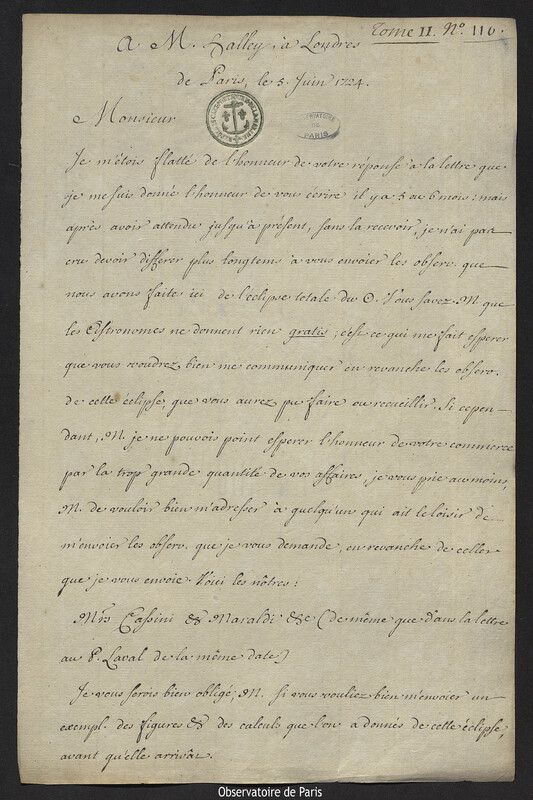 Tome II. Nº 116.
A M. Halley, à Londres
de Paris, le 5. Juin 1724.
Monsieur
OBSERVATOIRE
DE
PARIS
Je m'étois flatté de l'honneur de votre réponse à la lettre que
je me suis donné l'honneur de vous écrire il y a 5 ou 6 mois: mais
après avoir attendu jusqu'à présent, sans la recevoir, je n'ai pas
cru devoir differer plus longtems à vous envoier les observ. que
nous avons faite ici de l'éclipse totale du ☉. Vous savez M. que
les Astronomes ne donnent rien gratis; c'est ce qui me fait esperer
que vous voudrez bien me communiquer en revanche les observ.
de cette éclipse, que vous aurez pu faire ou recueillir. Si cepen-
dant, M. je ne pouvois point esperer l'honneur de votre commerce
par la trop grande quantité de vos affaires, je vous prie au moins,
M. de vouloir bien m'adresser à quelqu'un qui ait le loisir de
m'envoier les observ. que je vous demande, en revanche de celles
que je vous envoie. Voici les nôtres:
Mrs Cassini & Maraldi &c (de même que dans la lettre
au P. Laval de la même date)
Je vous serois bien obligé, M. si vous vouliez bien m'envoier un
exempl. des figures & des calculs que l'on a donnés de cette éclipse,
avant qu'elle arrivât.
Observatoire de Paris